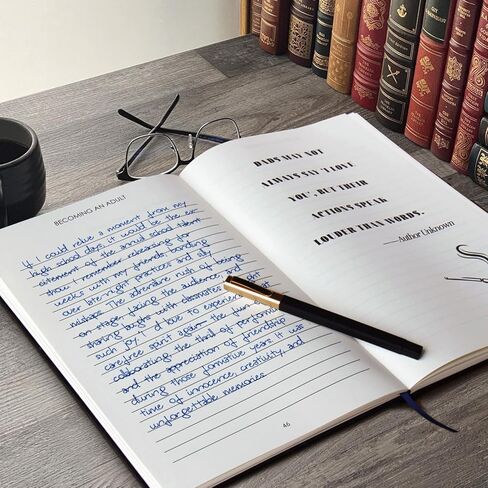 BECOMING AN ADULT
If I could relive a moment from my
high school days, it would be the exc
itement of the annual school talent
show. I remember rehearsing for
weeks with my friends, bonding
over late-night practices and silly
mishaps. The adrenaline rush of being
on stage, facing the audience, and
sharing laughs with classmates
such joy. I'd love to experience
carefree spirit again, the fun of
collaborating, the thrill of performing,
and the appreciation of friendship
during those formative years. It was
time of innocence, creativity, and
unforgettable memories.
46
DADS MAY NOT
ALWAYS SAY "I LOVE
YOU", BUT THEIR
ACTIONS SPEAK
LOUDER THAN WORDS.
—Author Unknown